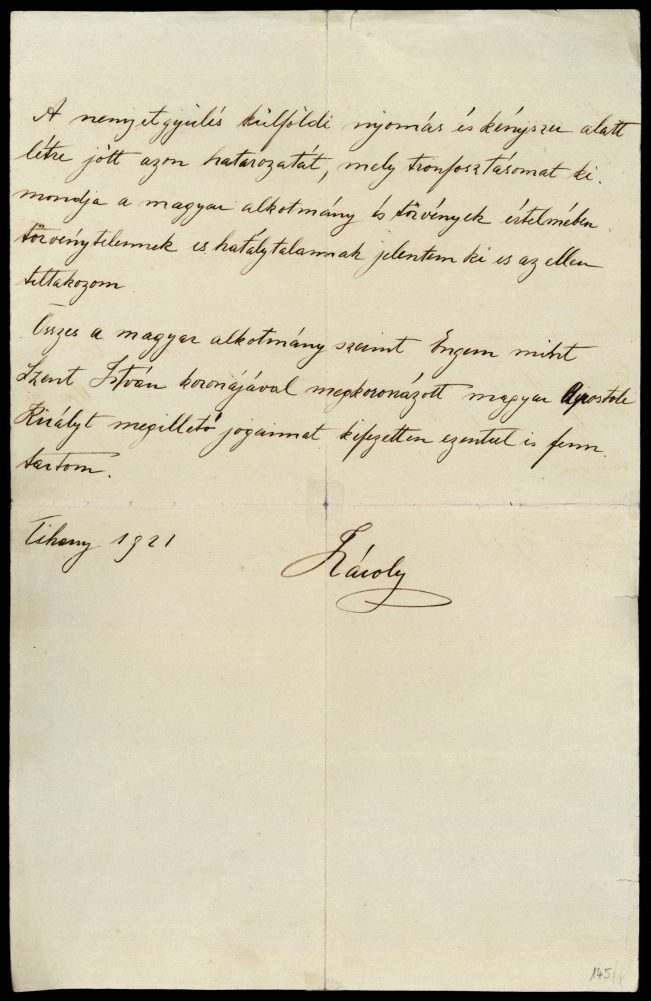 A nemzetgyülés külföldi nyomás és kényszer alatt
létre jött azon határozatát, mely tronfosztásomat ki-
mondja a magyar alkotmány és törvények értelmében
törvénytelennek es hatálytalannak jelentem ki es az ellen
tiltakozom.
Összes a magyar alkotmány szerint Engem mint
Szent István koronájával megkoronázott magyar Apostoli
Királyt megillető jogaimat kifejezetten ezentul is fenn
tartom.
Tihany 1921
Károly
145